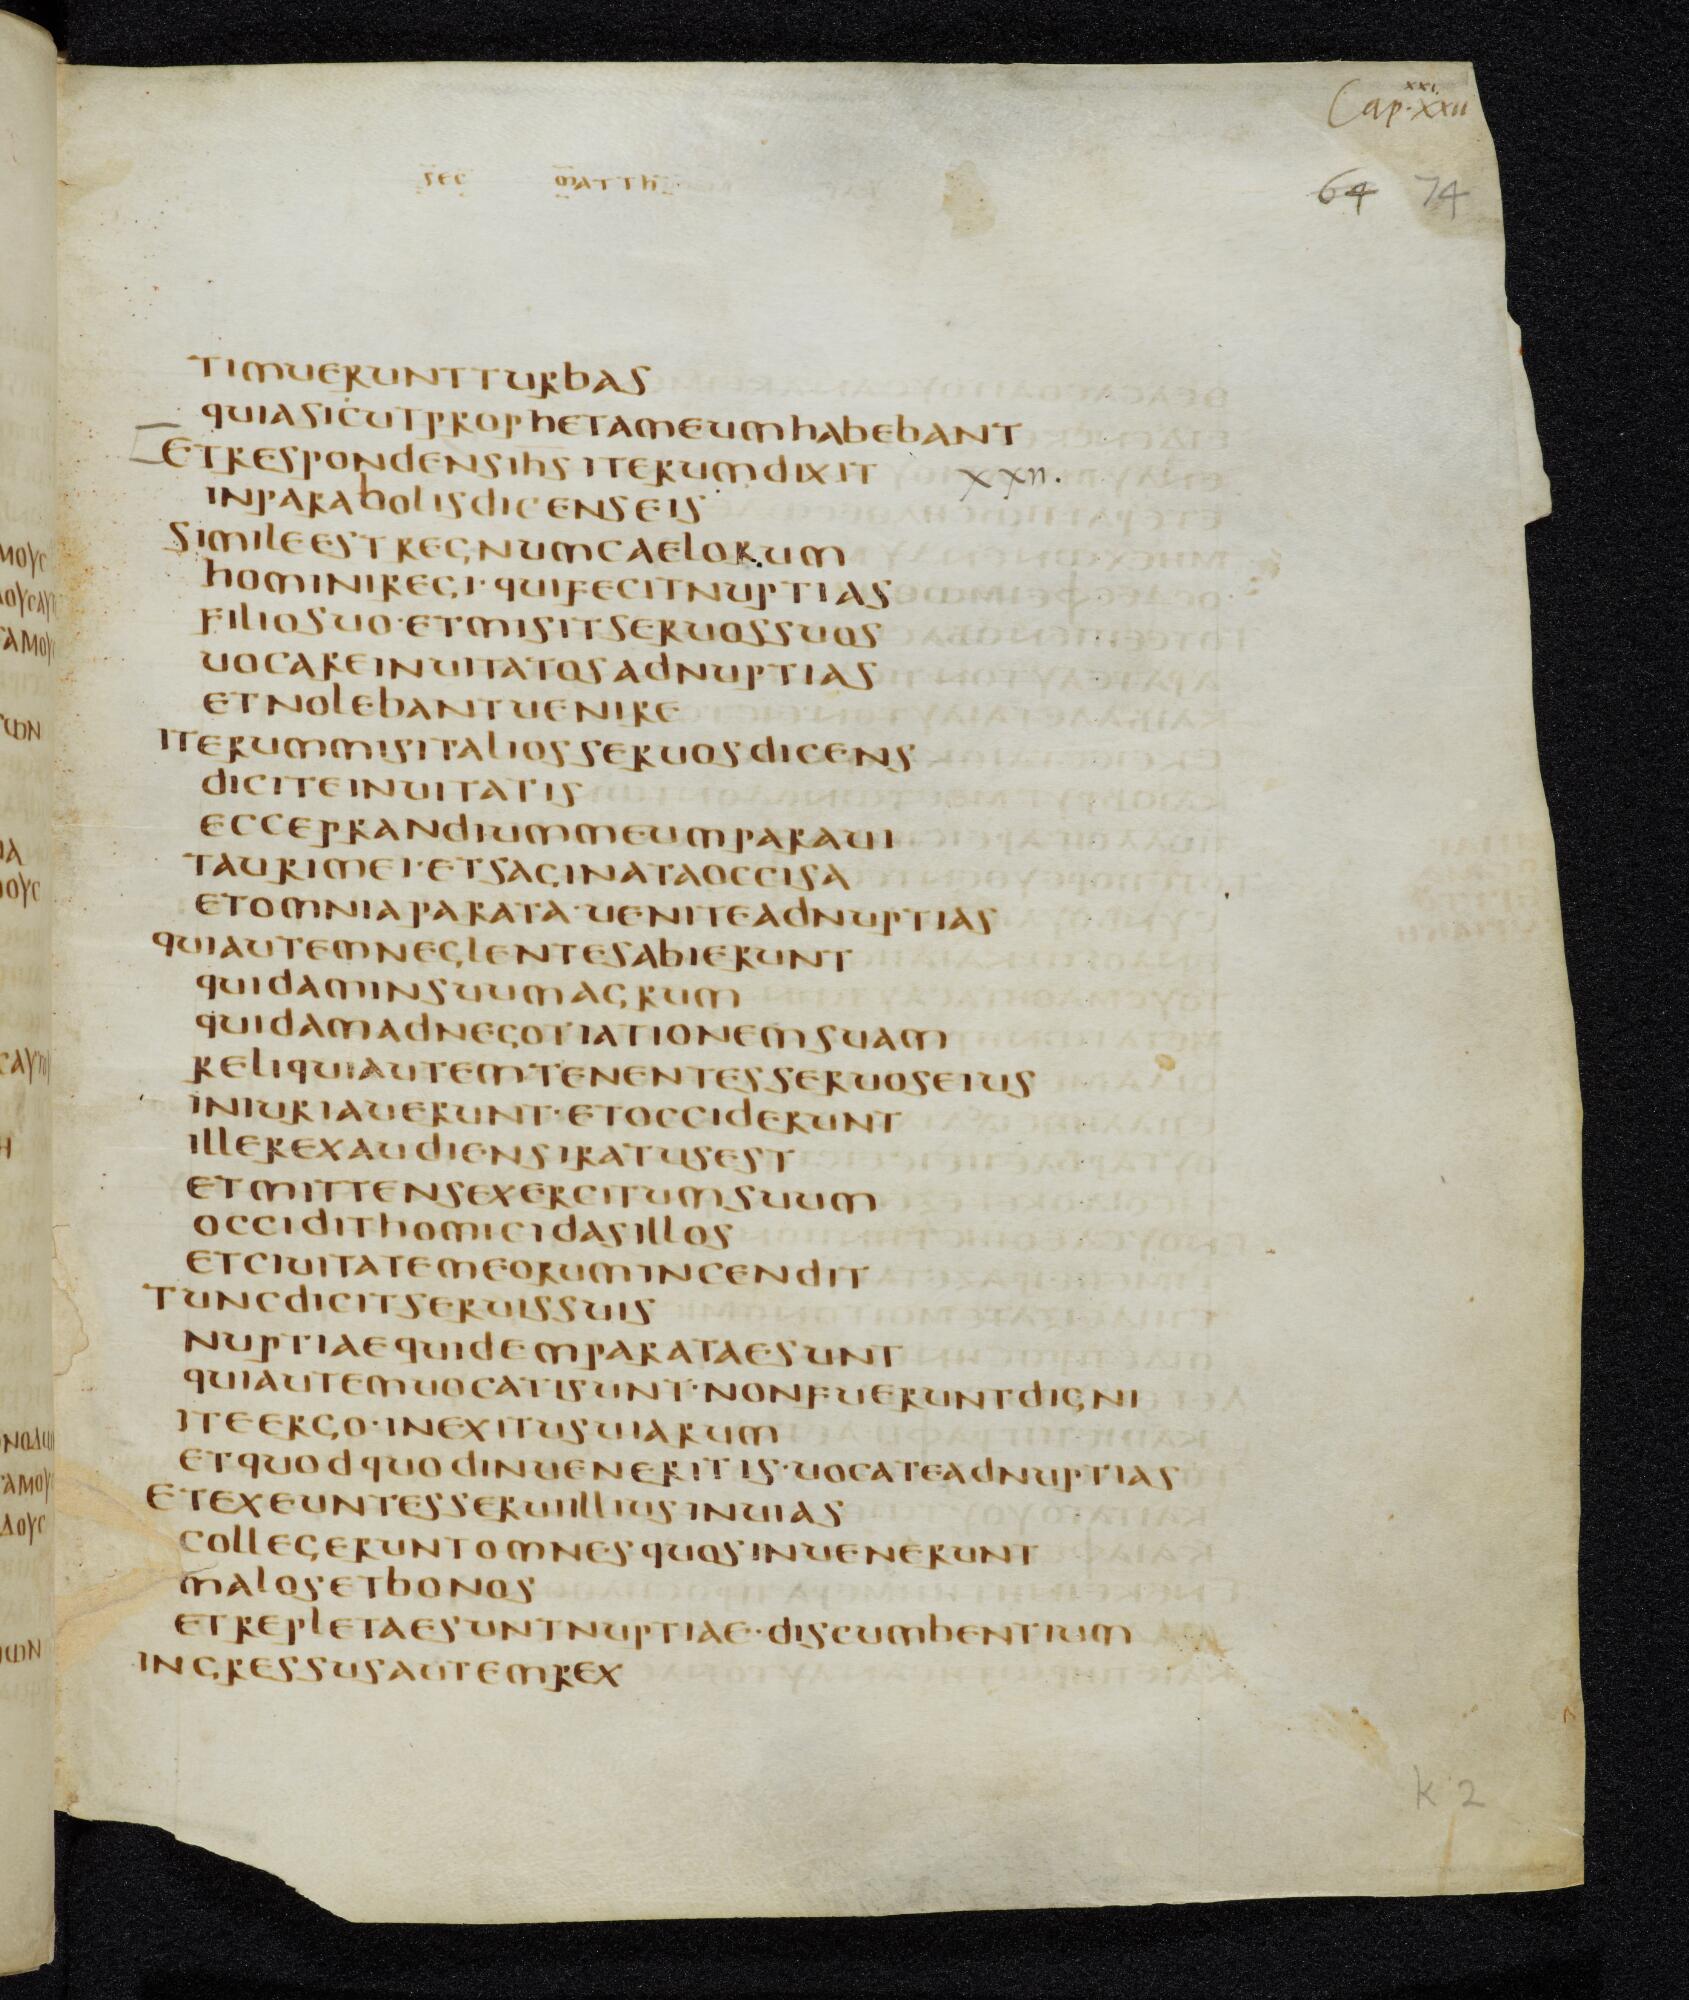 Cap. xxi. xxii
64 74
sec matth
timueruntturbas
quiasicutprophetameumhabebant
etrespondensihsiterumdixit xxii.
inparabolisdicenseis
simileestregnumcaelorum
hominiregi·quifecitnuptias
filiosuo·etmisitseruossuos
uocareinuitatosadnuptias
etnolebantuenire
iterummisitaliosseruosdicens
diciteinuitatis
ecceprandiummeumparaui
taurimei·etsaginataoccisa
etomniaparata·ueniteadnuptias
quiautemneglentesabierunt
quidaminsuumagrum
quidamadnegotiationemsuam
reliquiautemtenentesseruoseius
iniuriauerunt·etocciderunt
illerexaudiensiratusest
etmittensexercitumsuum
occidithomicidasillos
etciuitatemeorumincendit
tuncdicitseruissuis
nuptiaequidemparataesunt
quiautemuocatisunt·nonfueruntdigni
iteergo·inexitusuiarum
etquodquodinueneritis·uocateadnuptias
etexeuntesseruiilliusinuias
collegeruntomnesquosinuenerunt
malosetbonos
etrepletaesuntnuptiae·discumbentium
ingressusautemrex
k 2